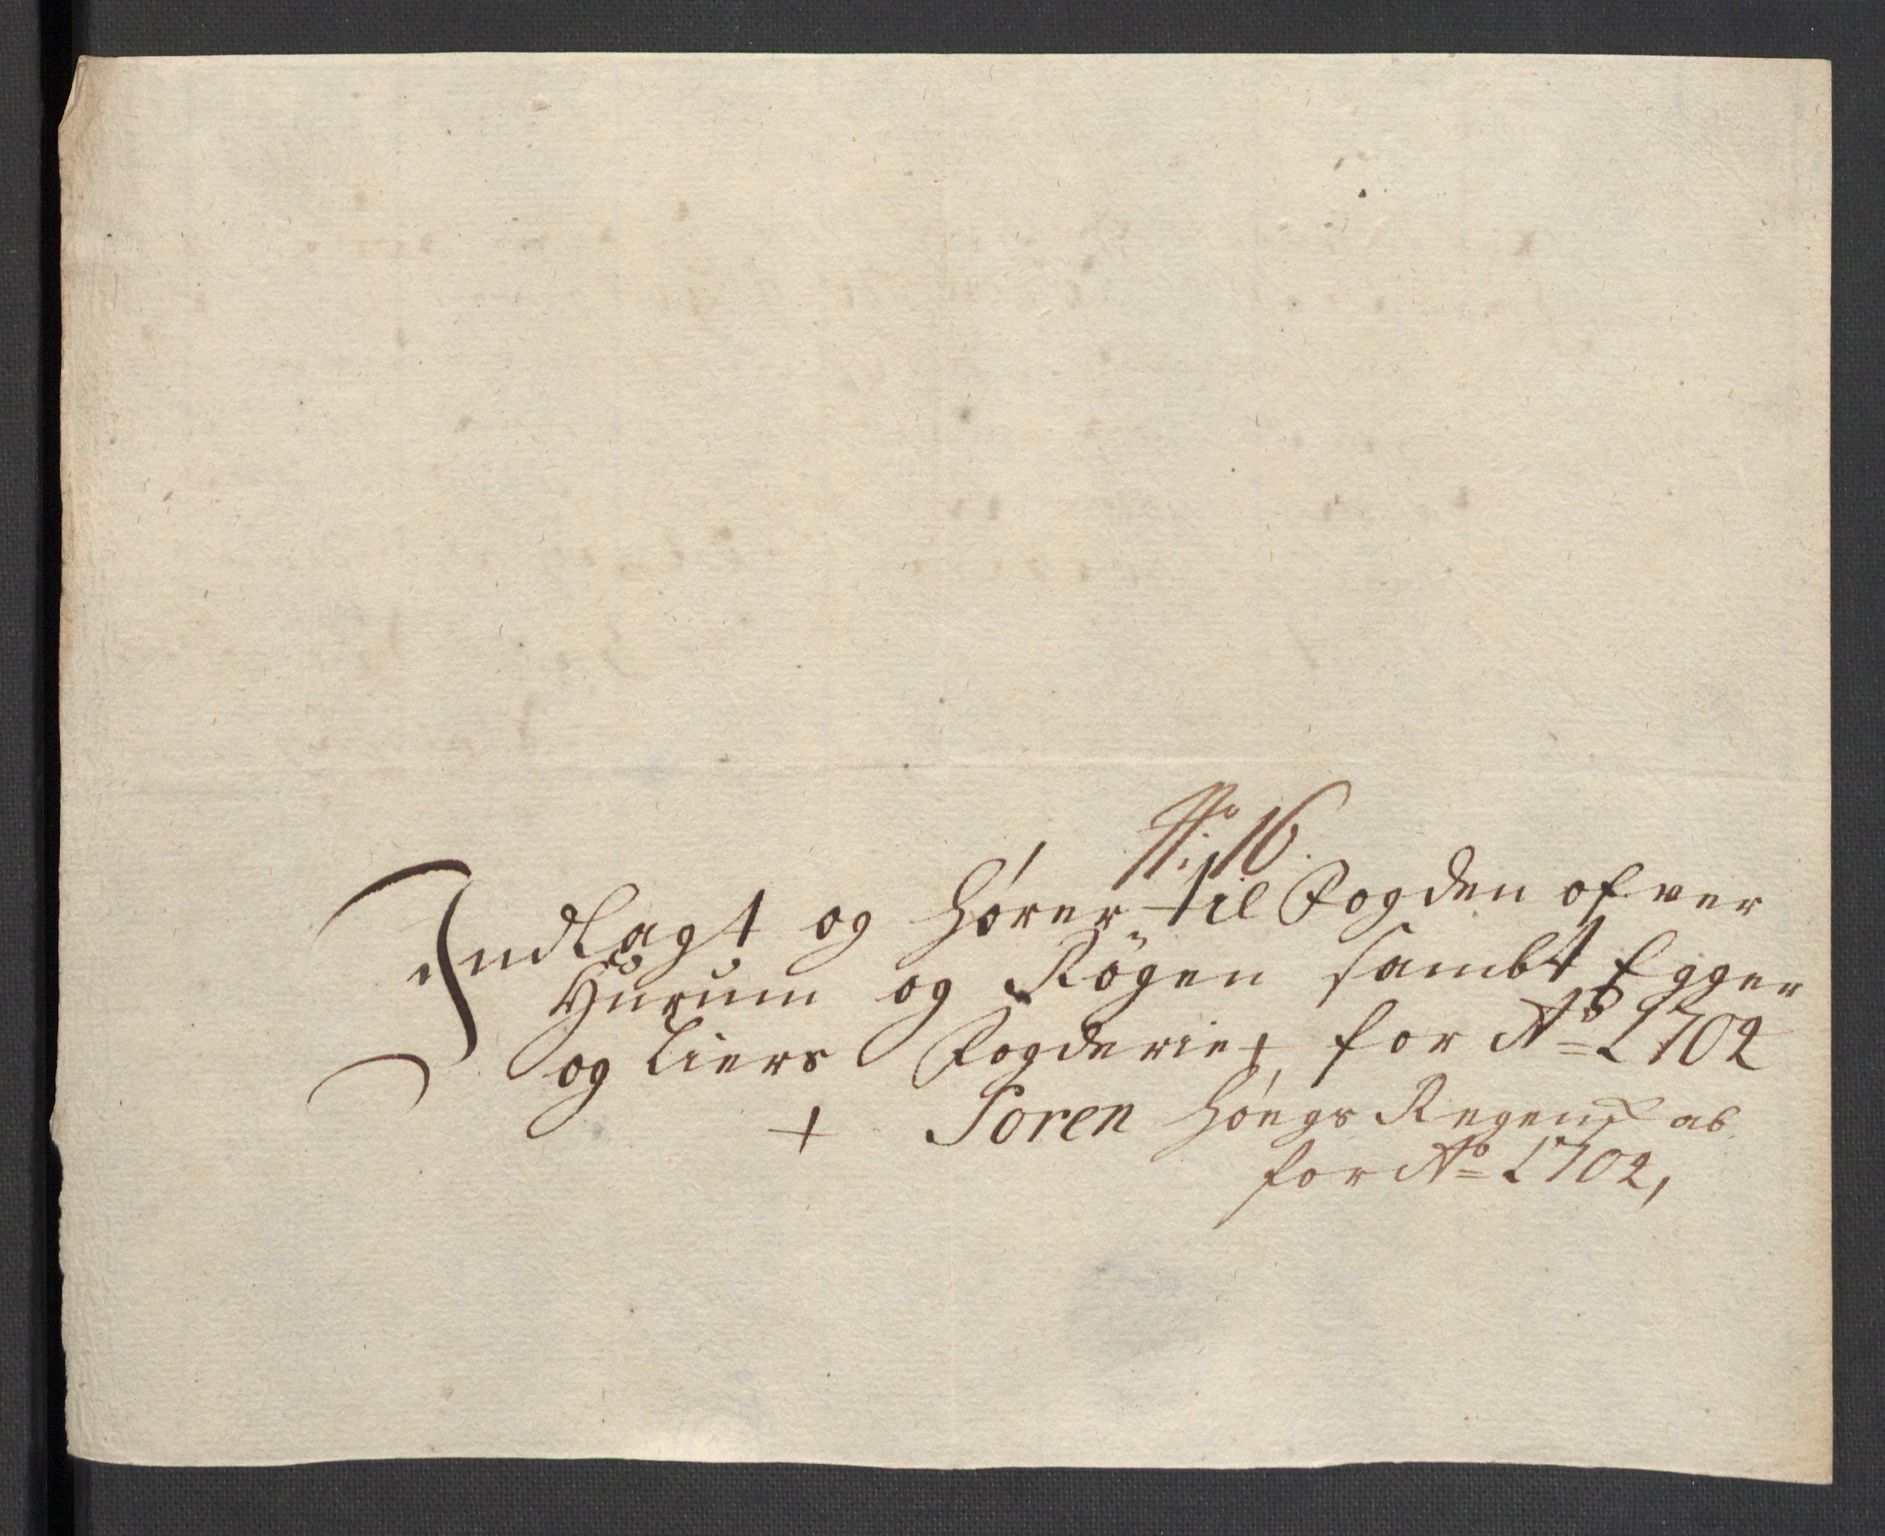 No: 16.
Indlagt og hörer til Fogden ofver
Hurum og Rögen sambt Egger
og Liers Fogderie + for Ao 1702
+ Soren Höegs Regenskab
for Ao 1702,